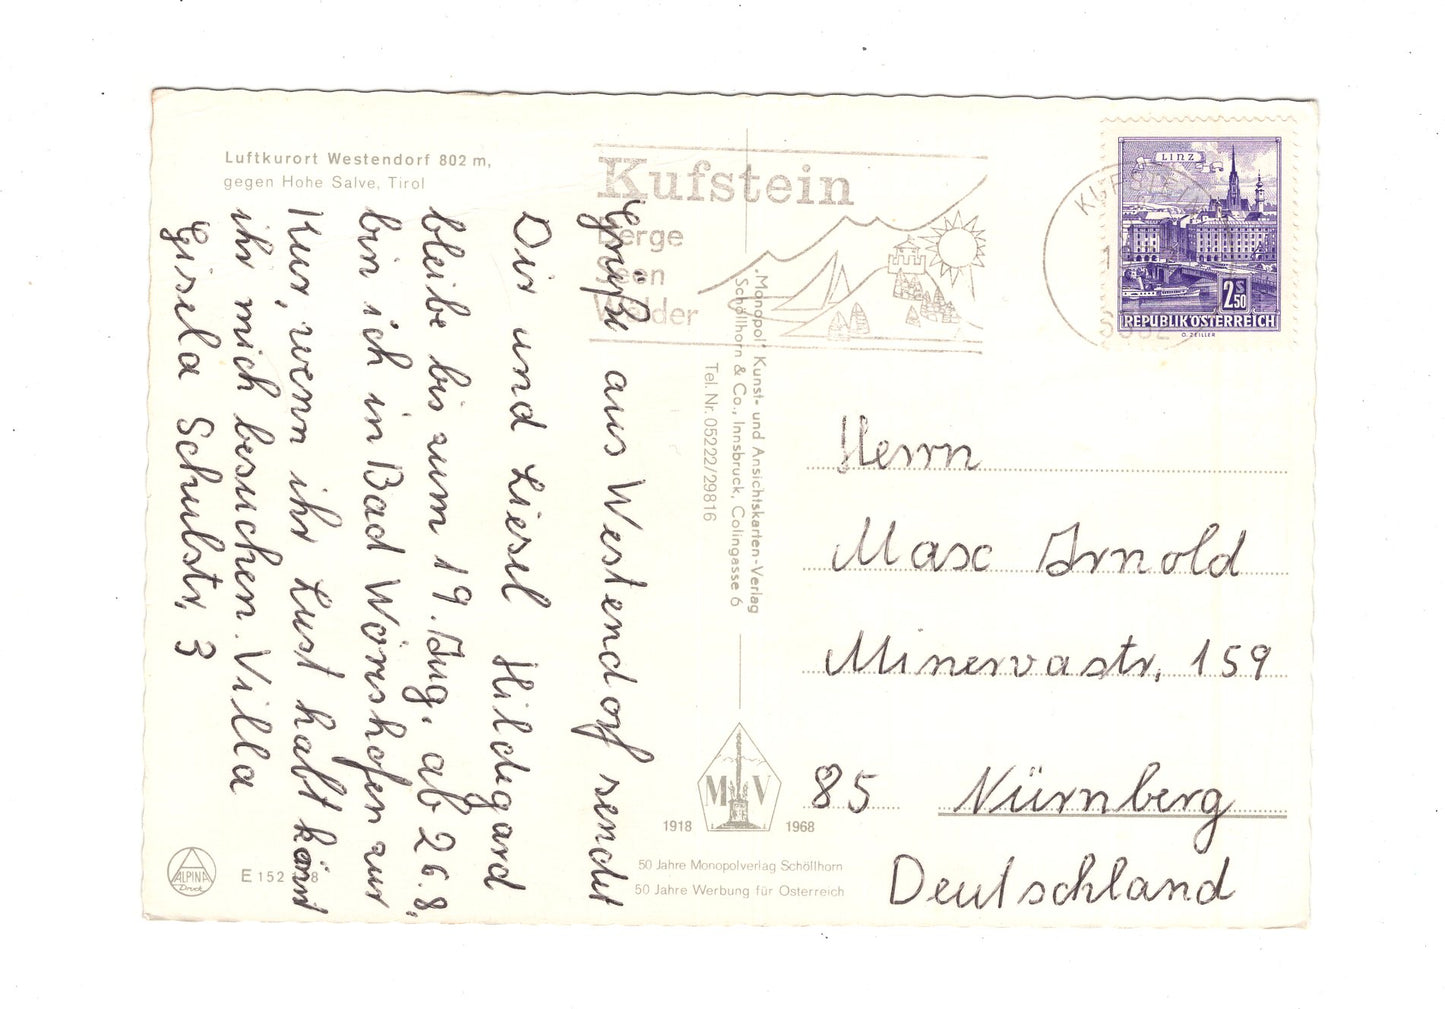 Luftkurort Westendorf 802 m,
gegen Hohe Salve, Tirol
Grüße aus Westendorf sendet
Dir und Liesel Hildegard
bleibe bis zum 19. Aug. ab 26.8.
bin ich in Bad Wörishofen zur
Kur, wenn ihr Lust habt könnt
ihr mich besuchen. Villa
Gisela Schulstr. 3
Kufstein
Berge
Seen
Wälder
"Monopol" Kunst- und Ansichtskarten-Verlag
Schöllhorn & Co., Innsbruck, Colingasse 6
Tel. Nr. 05222/29816
LINZ
2 S 50
REPUBLIK ÖSTERREICH
O. ZEILLER
Herrn
Max Arnold
Minervastr. 159
85 Nürnberg
Deutschland
M V
1918 1968
50 Jahre Monopolverlag Schöllhorn
50 Jahre Werbung für Österreich
ALPINA
Druck
E 152